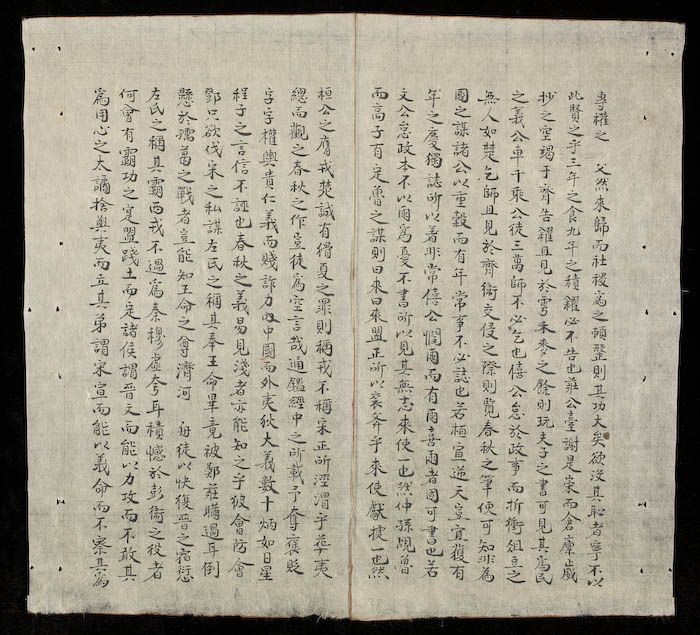 專權之 父然來歸而社稷爲之頓整則其功大矣欲沒其恥者寧不以
此賢之乎三年之食九年之積糴必不告也莊公臺謝是崇而倉廩咸
抄之空竭于齊告糴且見於雩禾麥之餘則玩夫子之書可見其爲民
之義公車千乘公徒三萬師不必乞也僖公怠於政事而折衝俎豆之
無人如楚乞師且見於齊衛交侵之際則覧春秋之筆便可知非爲
國之謀諸公以重穀而有年常事不必誌也若桓宣逆天豈宜獲有
年之慶獨誌所以着非常僖公憫雨而有雨喜雨者固可書也若
文公怠政本不以雨爲憂不書所以見其無志來使一也然仲孫覘魯
而高子有定魯之謀則曰來曰來盟正所以裒斧乎來使獻捷一也然
桓公之膺戎楚誠有猾夏之罪則稱戎不稱宋正所涇渭乎華夷
總而觀之春秋之作豈徒爲空言哉通鑑經中之所載予奪褒貶
字字權輿貴仁義而賤詐力內中國而外夷狄大義數十炳如日星
程子之言信不誣也春秋之義易見淺者亦能知之乎彼會防會
鄧只欲伐宋之私謀左氏之稱其奉王命畢竟被鄭莊瞞過耳倒
懸於繻葛之戰者豈能知王命之尊濟河 舟徒以快復晉之宿愆
左氏之稱其霸西戎不過爲秦穆虛夸耳積憾於彭衙之役者
何會有霸功之定盟踐土而定諸侯謂晉文而能以力攻而不敢其
爲用心之太譎捨與夷而立其弟謂宋宣而能以義命而不察其爲